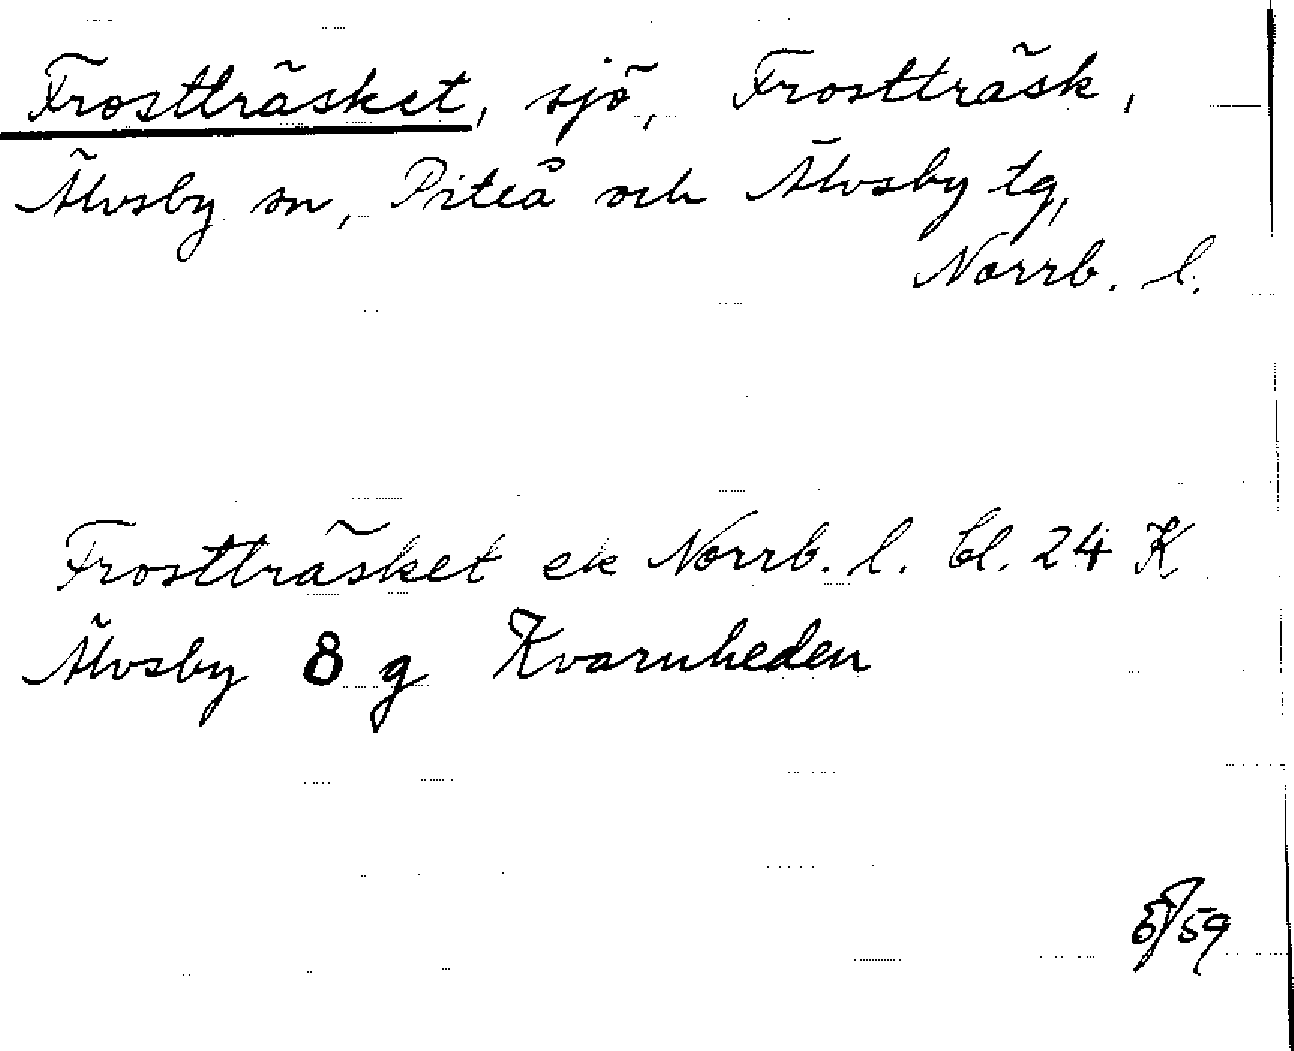 Frostträsket, sjö, Frostträsk,
Älvsby sn, Piteå och Älvsby tg,
Norrb. l.
Frostträsket ek Norrb. l. bl. 24 K
Älvsby 8 g Kvarnheden
/59